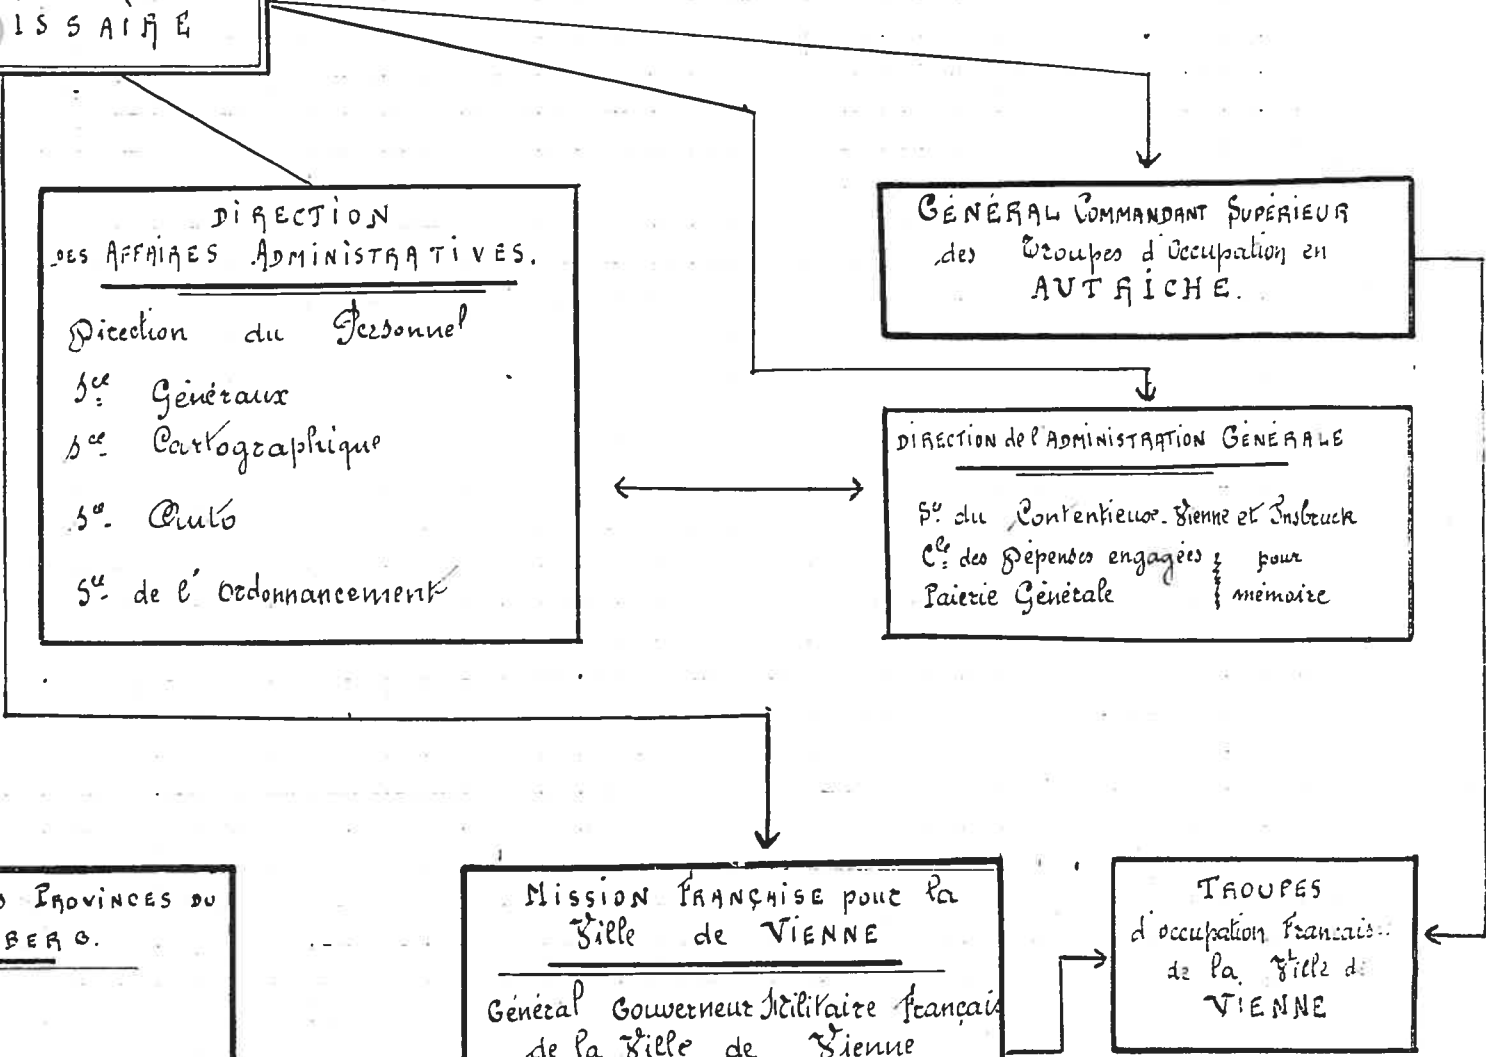 ISSAIRE
DIRECTION
DES AFFAIRES ADMINISTRATIVES.
Direction du Personnel
Sce Généraux
Sce Cartographique
Sce Auto
Sce de l'Ordonnancement
GÉNÉRAL COMMANDANT SUPÉRIEUR
des Troupes d'Occupation en
AUTRICHE.
DIRECTION de l'ADMINISTRATION GÉNÉRALE
Sce du Contentieux. Vienne et Insbruck
Cle des Dépenses engagées } pour
Paierie Générale } mémoire
PROVINCES DU
BERG.
MISSION FRANÇAISE pour la
Ville de VIENNE
Général Gouverneur Militaire Français
de la Ville de Vienne
TROUPES
d'occupation Francais
de la Ville de
VIENNE